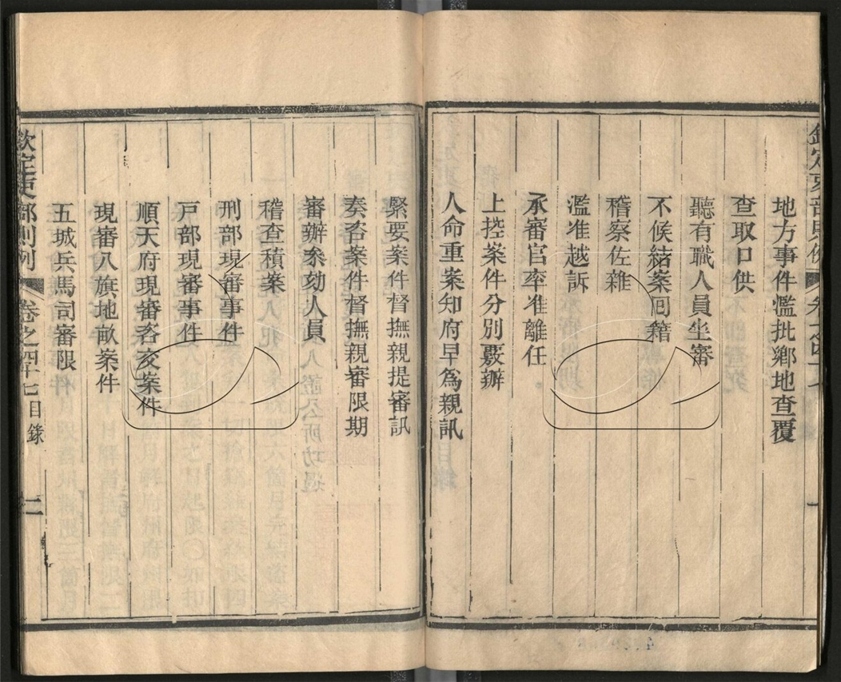 地方事件濫批鄉地查覆
查取口供
聽有職人員坐審
不候結案囘籍
稽察佐雜
濫准越訴
承審官率准離任
上控案件分別覈辦
人命重案知府早爲親訊
緊要案件督撫親提審訊
奏咨案件督撫親審限期
審辦叅劾人員
稽查積案
刑部現審事件
戸部現審事件
順天府現審咨交案件
現審八旗地畝案件
五城兵馬司審限
欽定吏部則例 卷之四十七目錄 二